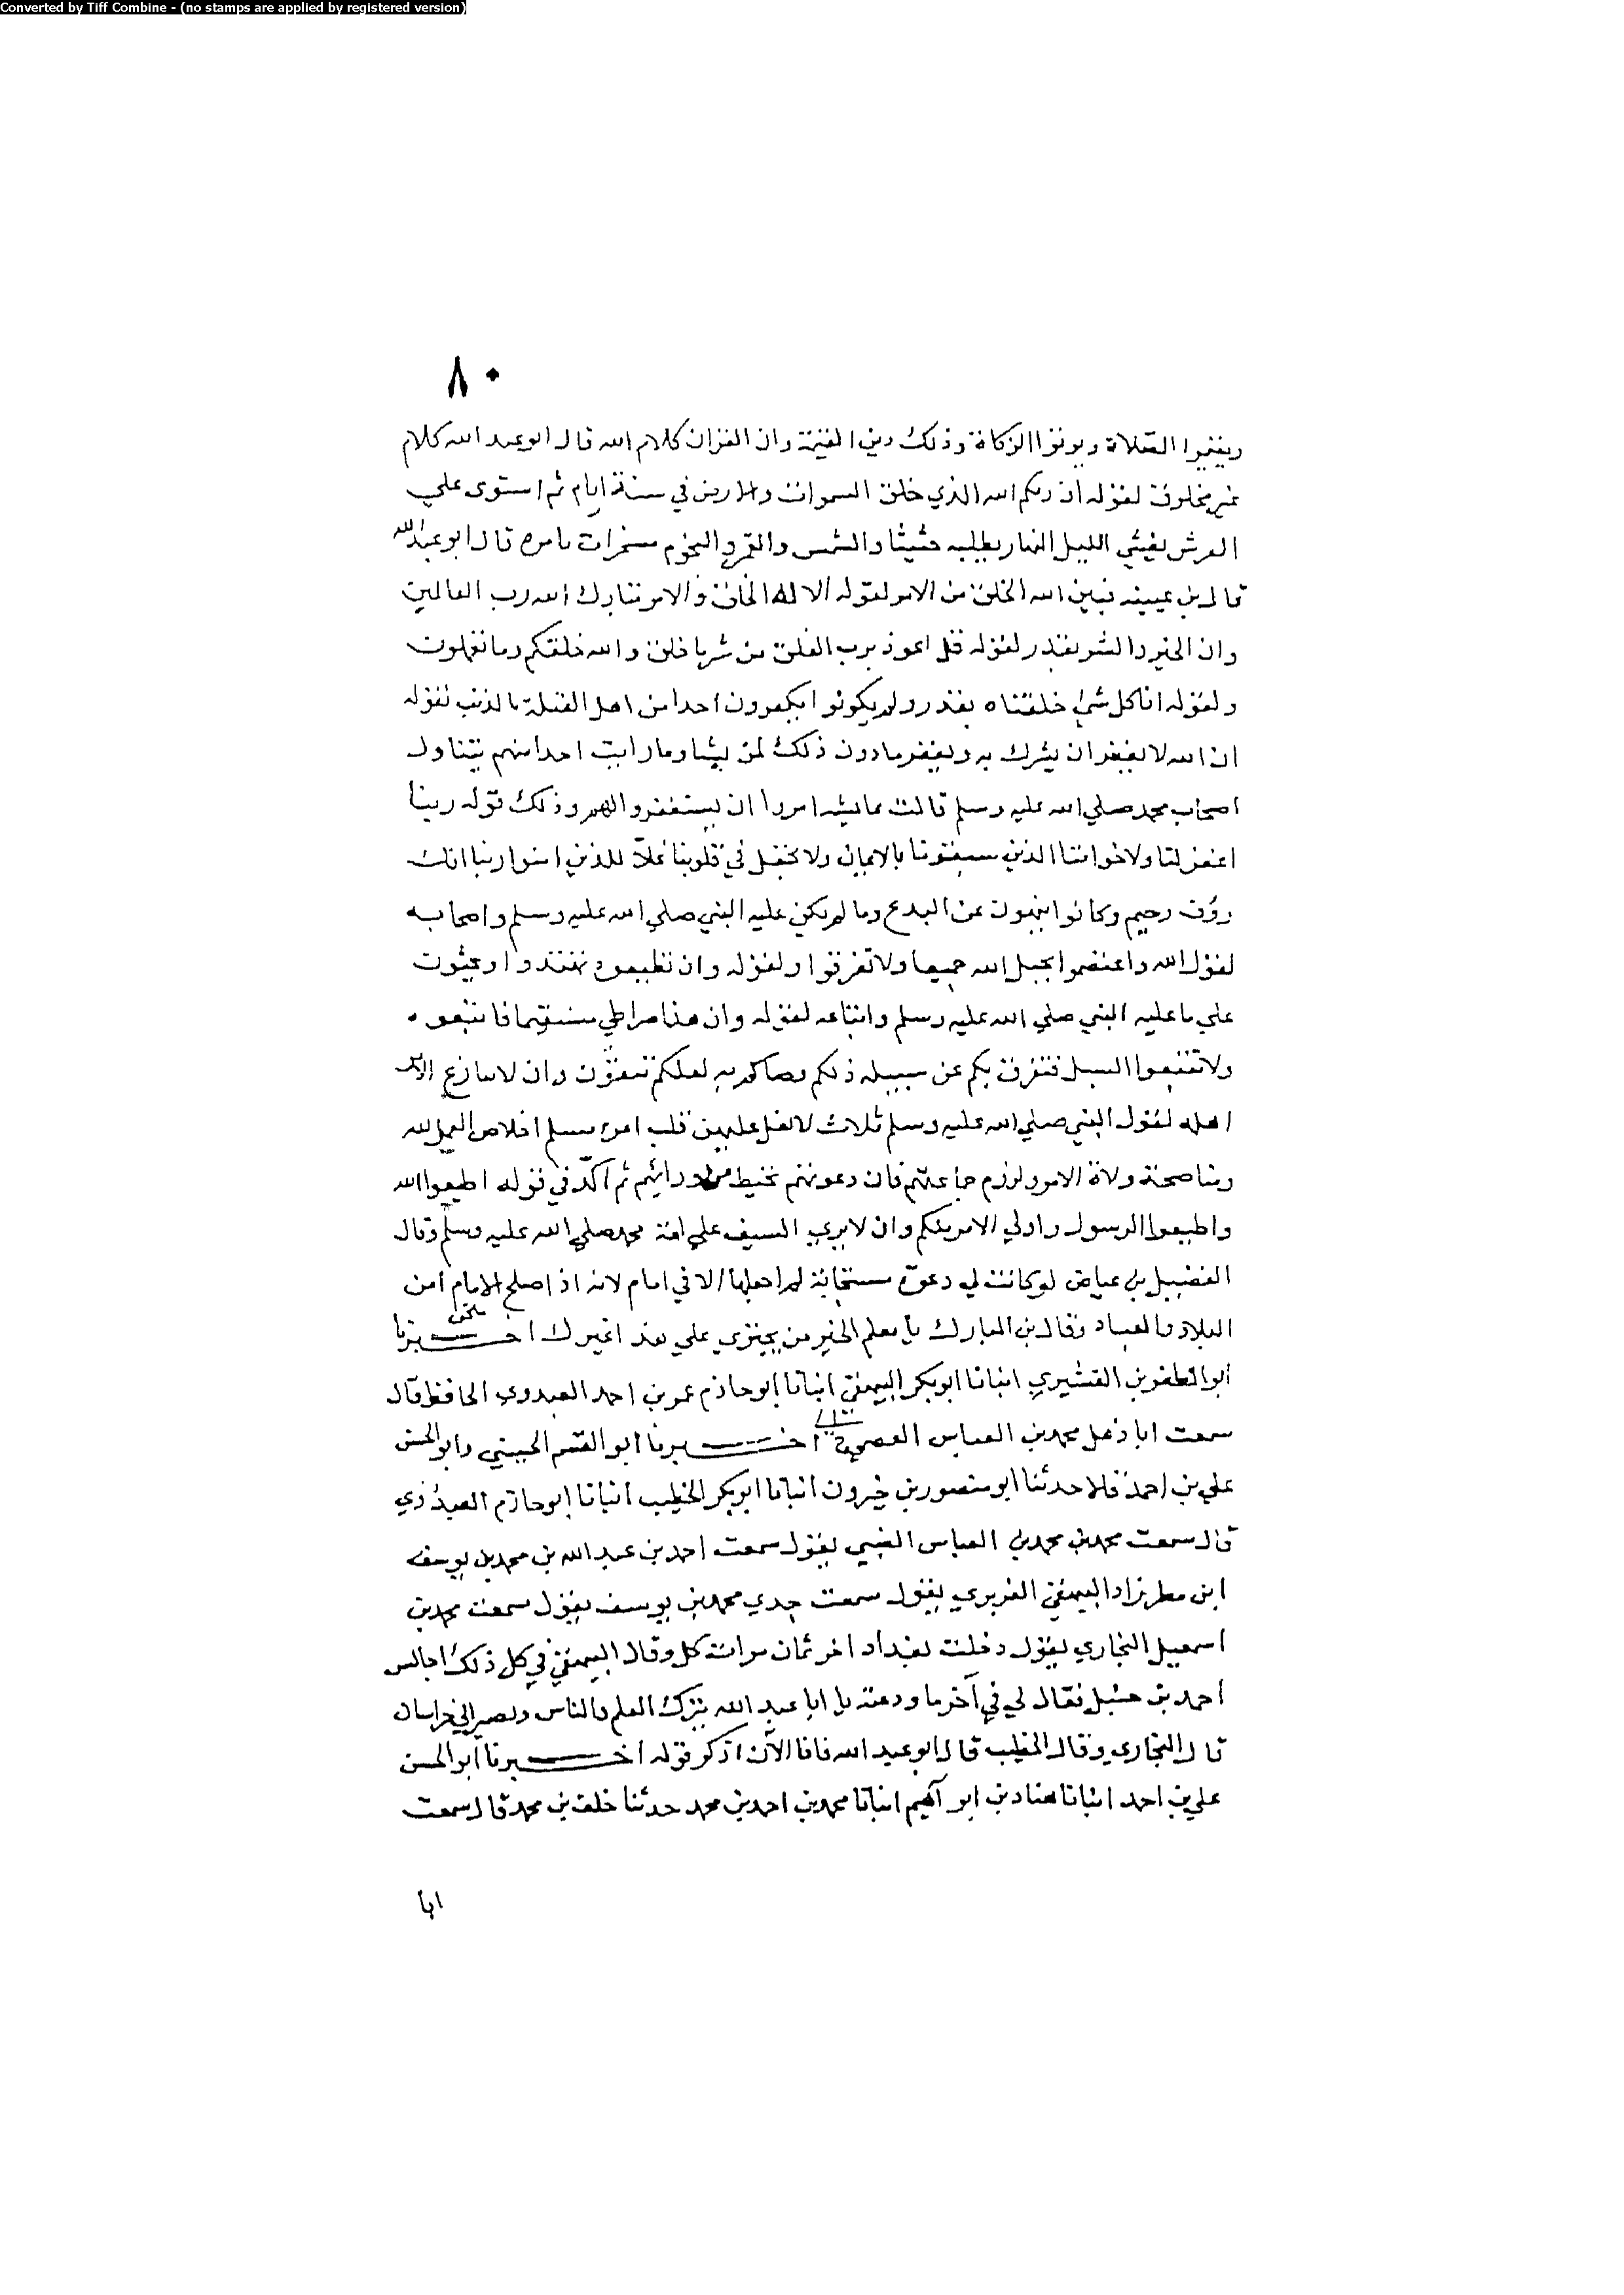 Converted by Tiff Combine - (no stamps are applied by registered version)
٨٠
ويقيموا الصلاة ويوتوا الزكاة وذلك دين القيمة وان القران كلام الله قال ابو عبد الله كلام
غير مخلوق لقوله ان ربكم الله الذي خلق السموات والارض في ستة ايام ثم استوى علي
العرش يغشي الليل النهار يطلبه حثيثا والشمس والقمر والنجوم مسخرات بامره قال ابو عبد الله
قال بن عيينه فبين الله الخلق من الامر لقوله الا له الخلق والامر تبارك الله رب العالمين
وان الخير والشر بقدر لقوله قل اعوذ برب الفلق من شر ما خلق والله خلقكم وما تعملون
ولقوله انا كل شئ خلقناه بقدر ولم يكونوا يكفرون احدا من اهل القبلة بالذنب لقوله
ان الله لا يغفر ان يشرك به ويغفر ما دون ذلك لمن يشا وما رايت احدا منهم يتناول
اصحاب محمد صلي الله عليه وسلم قالت عايشه امروا ان يستغفروا لهم وذلك قوله ربنا
اغفر لنا ولاخواننا الذين سبقونا بالايمان ولا تجعل في قلوبنا غلاّ للذين امنوا ربنا انك
رؤف رحيم وكانوا ينهون عن البدع وما لم يكن عليه النبي صلي الله عليه وسلم واصحابه
لقول الله واعتصموا بحبل الله جميعا ولا تفرقوا ولقوله وان تطيعوه تهتدوا ويحثون
علي ما عليه النبي صلي الله عليه وسلم واتباعه لقوله وان هذا صراطي مستقيما فاتبعوه
ولا تتبعوا السبل فتفرق بكم عن سبيله ذلكم وصاكم به لعلكم تتقون وان لا ينازع الامر
اهله لقول النبي صلي الله عليه وسلم ثلاث لا يغل عليهن قلب امرئ مسلم اخلاص العمل لله
ومناصحة ولاة الامر ولزوم جماعتهم فان دعوتهم تحيط من ورائهم ثم اكّد في قوله اطيعوا الله
واطيعوا الرسول واولي الامر منكم وان لا يري السيف علي امة محمد صلي الله عليه وسلم وقال
الفضيل بن عياض لو كانت لي دعوة مستجابة لم اجعلها الا في امام لانه اذا صلح الامام امن
البلاد والعباد وقال بن المبارك يا معلم الخير من يجترى علي هذا غيرك اخبرنا
ملحق
ابو المظفر بن القشيري انبانا ابو بكر البيهقي انبانا ابو حازم عمر بن احمد العبدوي الحافظ قال
سمعت ابا ذهل محمد بن العباس العصمي ح اخبرنا ابو القسم الحسيني وابو الحسن
علي بن احمد قالا حدثنا ابو منصور بن خيرون انبانا ابو بكر الخطيب انبانا ابو حازم العبدوي
قال سمعت محمد بن محمد بن العباس الضبي يقول سمعت احمد بن عبد الله بن محمد بن يوسف
ابن مطر زاد البيهقي الفربري يقول سمعت جدي محمد بن يوسف يقول سمعت محمد بن
اسمعيل البخاري يقول دخلت بغداد اخر ثمان مرات كل وقال البيهقي في كل ذلك اجالس
احمد بن حنبل فقال لي في آخر ما ودعته يا ابا عبد الله تترك العلم والناس وتصير الي خراسان
قال البخاري وقال الخطيب قال ابو عبد الله فانا الآن اذكر قوله اخبرنا ابو الحسن
علي بن احمد انبانا هناد بن ابراهيم انبانا محمد بن احمد بن محمد حدثنا خلف بن محمد قال سمعت
ابا